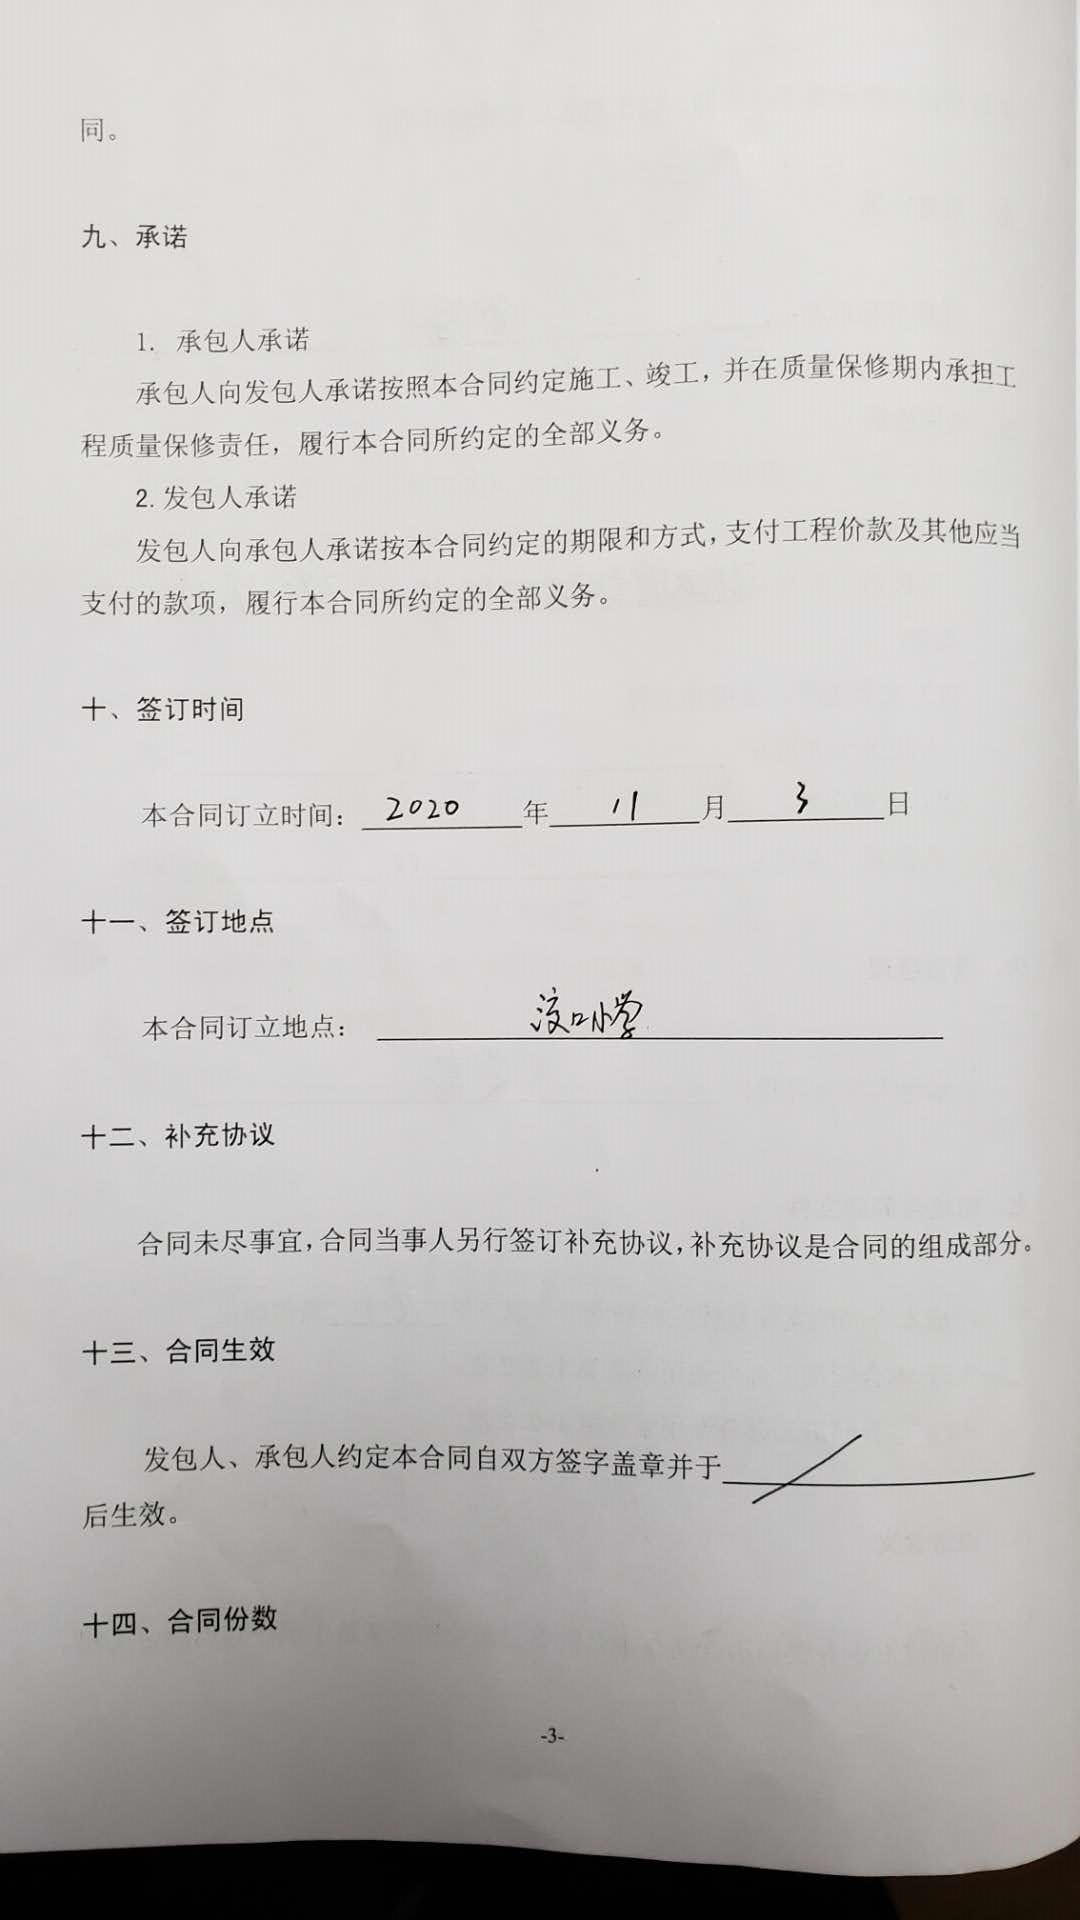 同。
九、承诺
1. 承包人承诺
承包人向发包人承诺按照本合同约定施工、竣工，并在质量保修期内承担工
程质量保修责任，履行本合同所约定的全部义务。
2. 发包人承诺
发包人向承包人承诺按本合同约定的期限和方式，支付工程价款及其他应当
支付的款项，履行本合同所约定的全部义务。
十、签订时间
本合同订立时间： 2020 年 11 月 3 日
十一、签订地点
本合同订立地点： 口小学
十二、补充协议
合同未尽事宜，合同当事人另行签订补充协议，补充协议是合同的组成部分。
十三、合同生效
发包人、承包人约定本合同自双方签字盖章并于
后生效。
十四、合同份数
-3-